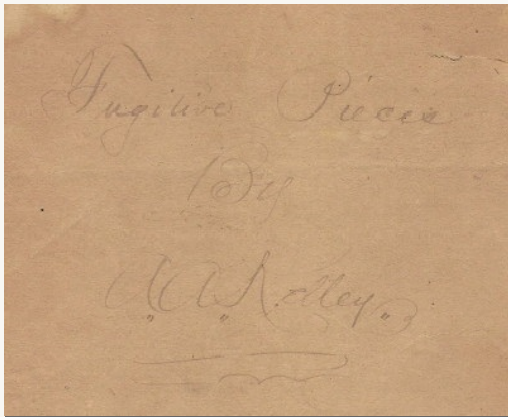 Fugitive Pieces
By
A,, A,, Kelley,,